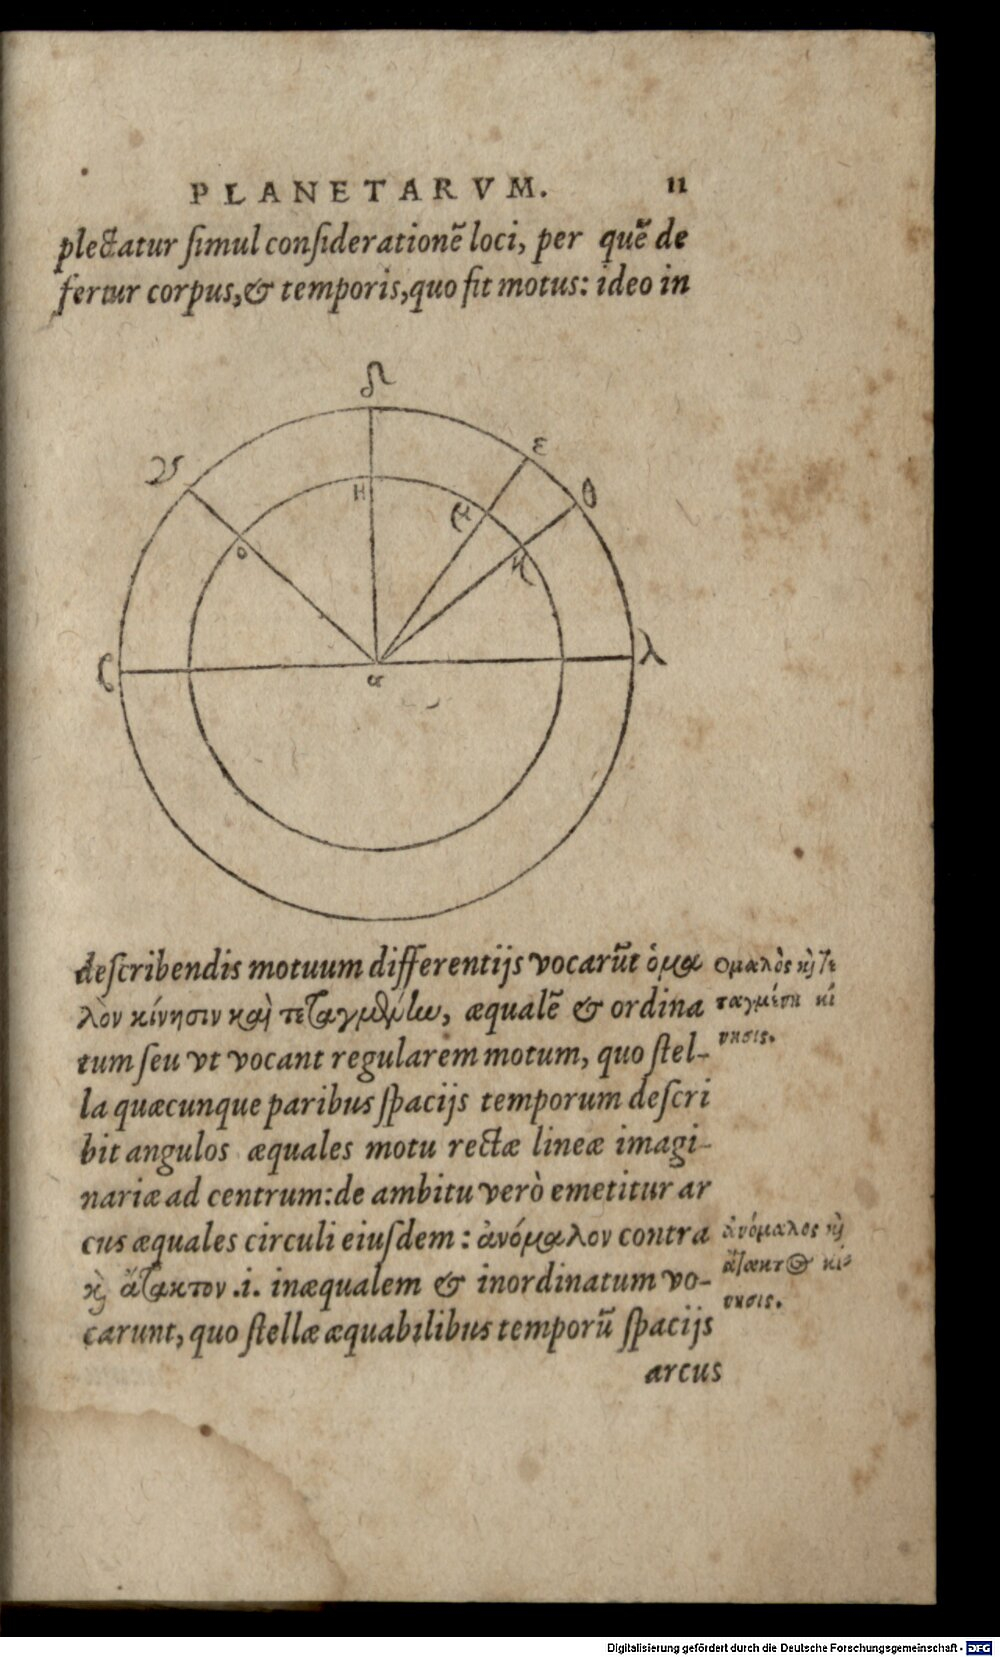 PLANETARVM. 11
plectatur ſimul conſiderationẽ loci, per quẽ de
fertur corpus,& temporis,quo fit motus: ideo in
δ
ε
θ
H
ο
α
λ
deſcribendis motuum differentijs vocarũt ὁμα
λὸν κίνησιν καὶ τεταγμένίω, æqualẽ & ordina
tum ſeu vt vocant regularem motum, quo ſtel-
la quæcunque paribus ſpacijs temporum deſcri
bit angulos æquales motu rectæ lineæ imagi-
nariæ ad centrum:de ambitu verò emetitur ar
cus æquales circuli eiuſdem : ἀνόμαλον contra
κὶ ἄτακτον .i. inæqualem & inordinatum vo-
carunt, quo ſtellæ æquabilibus temporũ ſpacijs
arcus
Ομαλὸς κὶ τε
ταγμένη κί
νησις.
ἀνόμαλος κὶ
ἄτακτος κί
νησις.
Digitalisierung gefördert durch die Deutsche Forschungsgemeinschaft - DFG